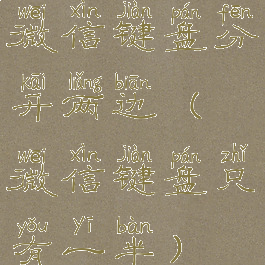 wēi xìn jiàn pán fēn
微信键盘分
kāi liǎng biān
开两边（
wēi xìn jiàn pán zhǐ
微信键盘只
yǒu yī bàn
有一半）